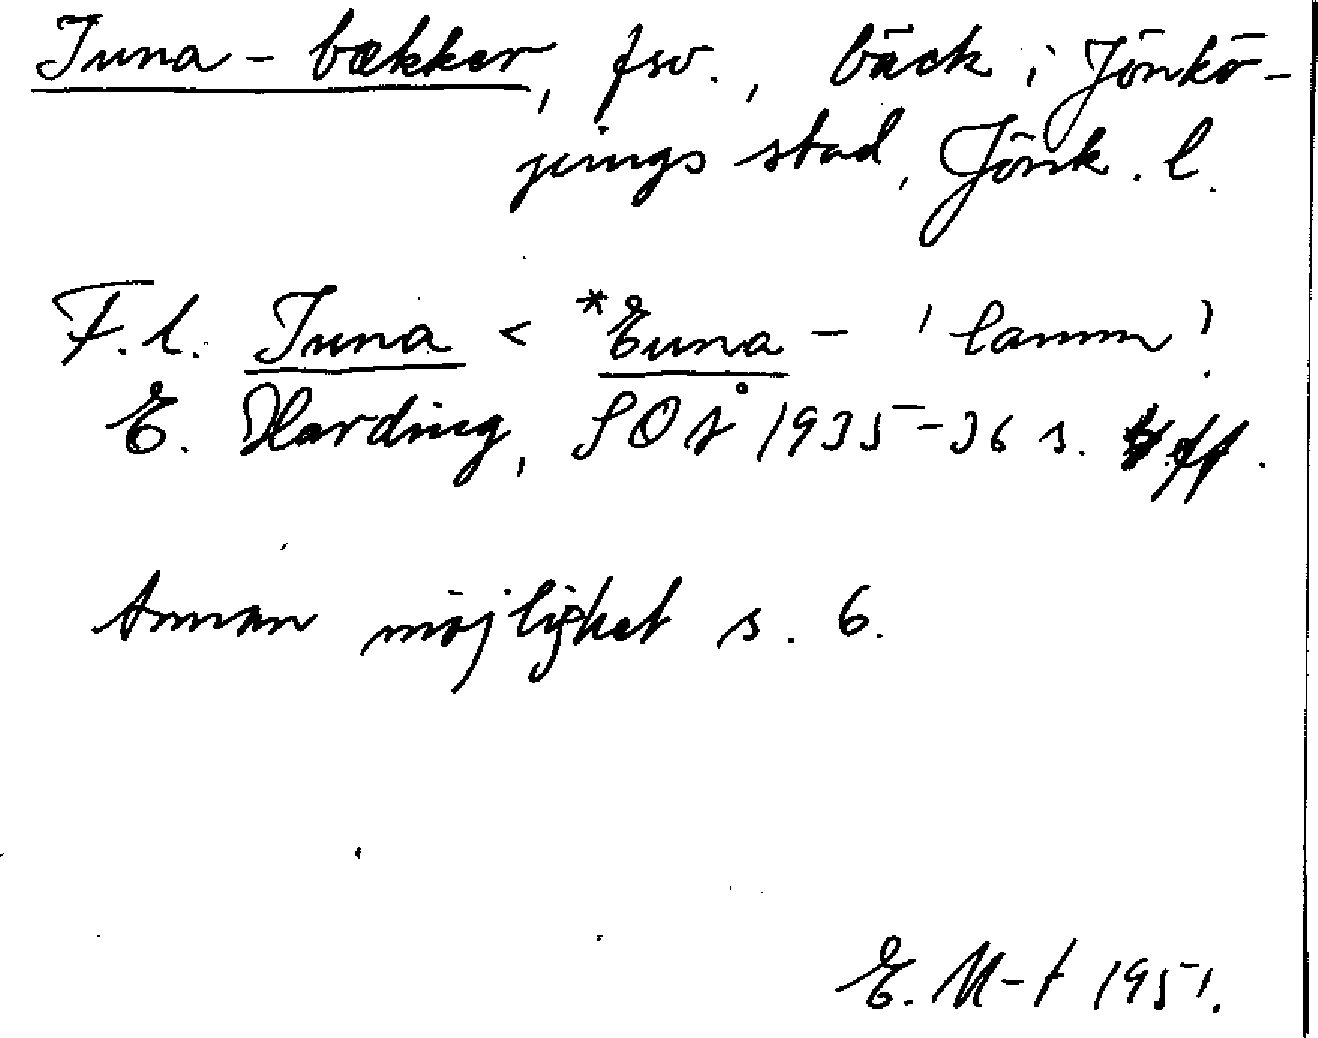 Juna-bækker, fsv., bäck i Jönkö-
pings stad, Jönk. l.
F.l. Juna < *Euna- 'lamm'.
E. Harding, SOÅ 1935-36 s. ff.
Annan möjlighet s. 6.
E. M-t 1951.